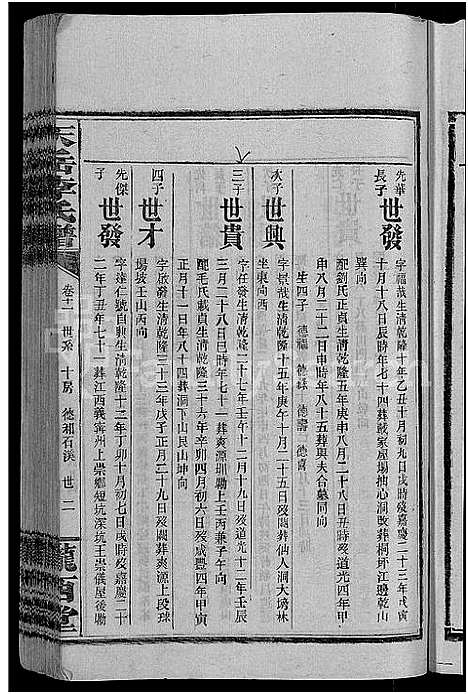 先華長子
世發
字福哉生清乾隆十年乙丑十月初九日戌時歿嘉慶二十三年戊寅
十月十八日辰時年七十四葬戢家屋場抽心洞改葬桐坪江邊乾山
巽向
配劉氏正貞生清乾隆十五年庚申八月二十八日丑時歿道光四年甲
申八月二十二日申時年八十五葬與夫合墓同向
生四子 德福 德祿 德壽 德喜
次子
世興
字景哉生清乾隆十五年庚午十月二十五日歿閩葬仙人洞大塝林
坐東向西
三子
世貴
字任哉生清乾隆二十七年壬午十二月十九日歿道光十二年壬辰
三月二十八日巳時年七十一葬爽源圳勘上壬丙兼子午向
配毛氏載貞生清乾隆三十六年辛卯四月初六日歿咸豐四年甲寅
正月十一日年八十四葬洞下山艮山坤向
四子
世才
字啟發生清乾隆三十三年戊子正月二十九日歿閩葬爽源上段球
場坡壬山丙向
先傑子
世發
字達仁號自興生清乾隆十二年丁卯十月初七日戌時歿嘉慶二十
二年丁丑年七十一葬江西義寧州上崇鄉短坑深坑王崇儀屋後勘
氏譜
卷十一 世系 十房 德祖石溪 世 二
隴西堂